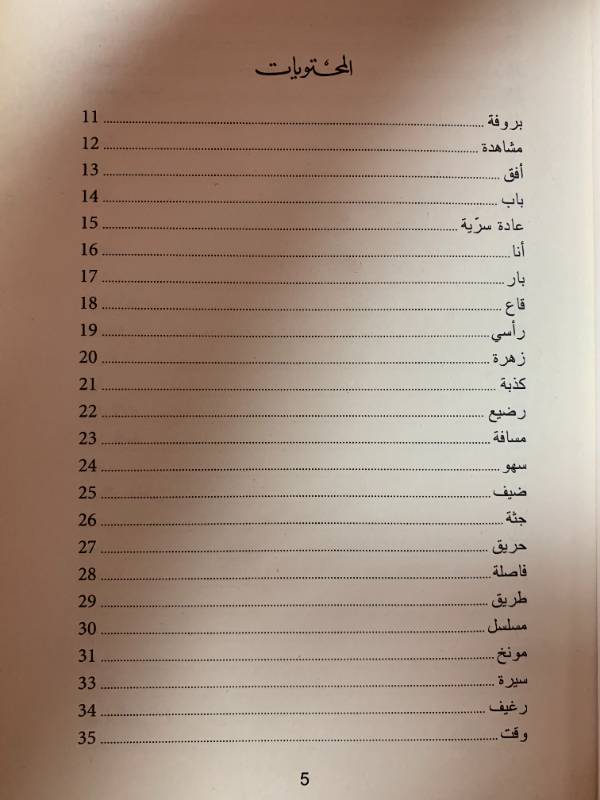 المحتويات
بروفة 11
مشاهدة 12
أفق 13
باب 14
عادة سرّية 15
أنا 16
بار 17
قاع 18
رأسي 19
زهرة 20
كذبة 21
رضيع 22
مسافة 23
سهو 24
ضيف 25
جثة 26
حريق 27
فاصلة 28
طريق 29
مسلسل 30
مونخ 31
سيرة 33
رغيف 34
وقت 35
5